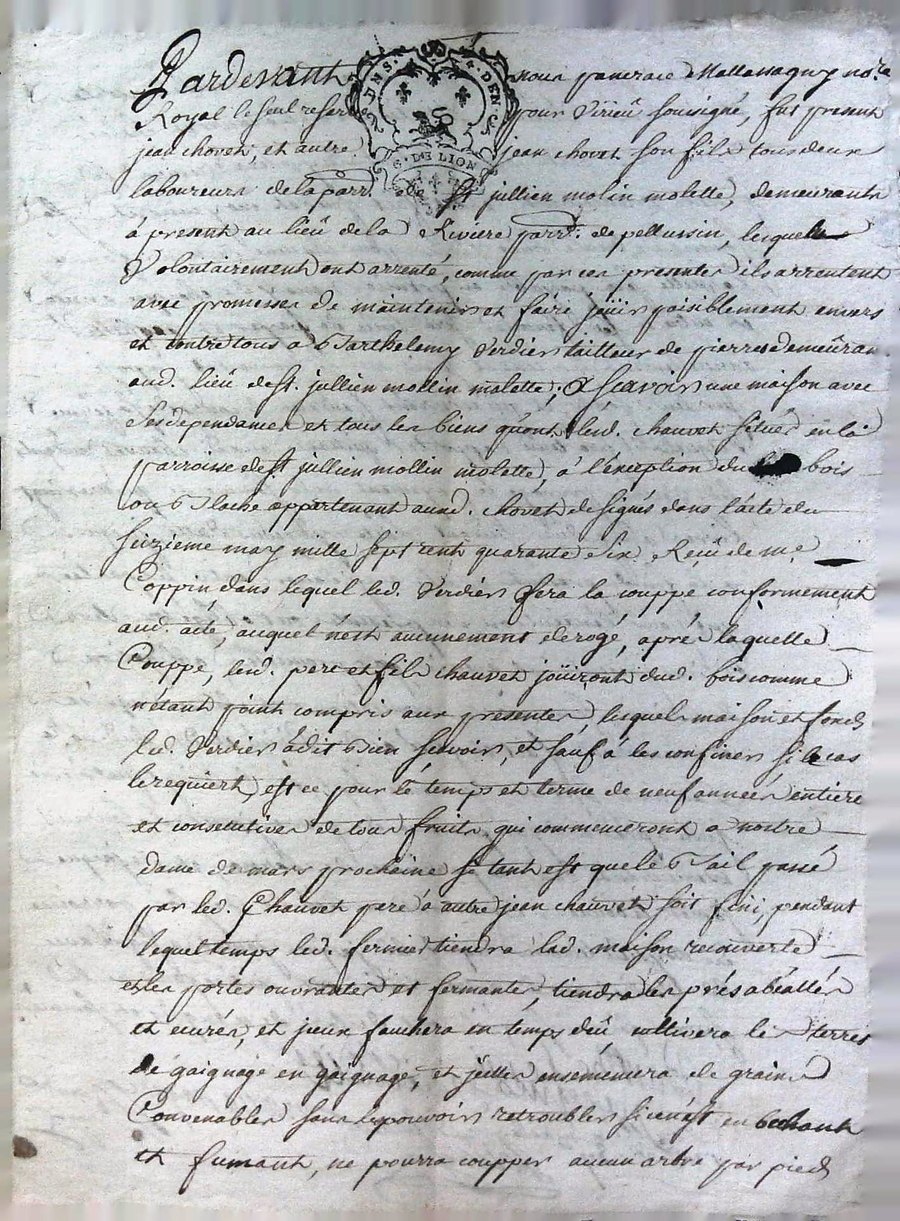 Pardevant nous pancrace Mallassagny no.re
Royal le seul reservé pour Virieu sousigné, fut present
jean chovet, et autre jean chovet son fils tous deux
laboureurs dela parr. de St jullien molin molette, demeurants
à present au lieu dela Riviere parr. de pellussin, lesquels
Volontairement ont arrenté, comme par ces presentes ils arrentent
avec promesses de maintenir et faire joüir paisiblement envers
et contre tous a Barthelemy Verdier tailleur de pierres demeurant
aud. lieu de St. jullien mollin molette; A Scavoir une maison avec
Ses dependances et tous les biens qu'ont lesd. chauvet situés en la
parroisse de St jullien mollin molette, à l'exception du bois
ou Blache appartenant aud. chovet designés dans l'acte du
seizieme may mille sept cent quarante six Reçû de me
Coppin dans lequel led. Verdier fera la couppe conformement
aud. acte, auquel n'est aucunement derogé, aprés laquelle
Couppe, lesd. pere et fils chauvet joüiront dud. bois comme
n'etant point compris aux presentes, lesquels maison et fonds
led. Verdier à dit Bien scavoir, et sauf à les confiner si le cas
le requiert, est ce pour le temps et terme de neuf années entiere
et consecutives de tous fruits qui commenceront a nostre
dame de mars prochaine si tant est que le Bail passé
par led. Chauvet pere à autre jean chauvet soit fini, pendant
lequel temps led. fermier tiendra lad. maison recouverte
et les portes ouvrantes et fermantes, tiendra les prés abéallés
et eurés, et jceux fauchera en temps deû, cultivera les terres
de gaignage en gaignage, et jcelles ensemencera de grains
Convenables sans le pouvoir retroubler si ce n'est en bechant
et fumant, ne pourra coupper aucun arbre par pied
DMS. G. DEN
G. DE LION